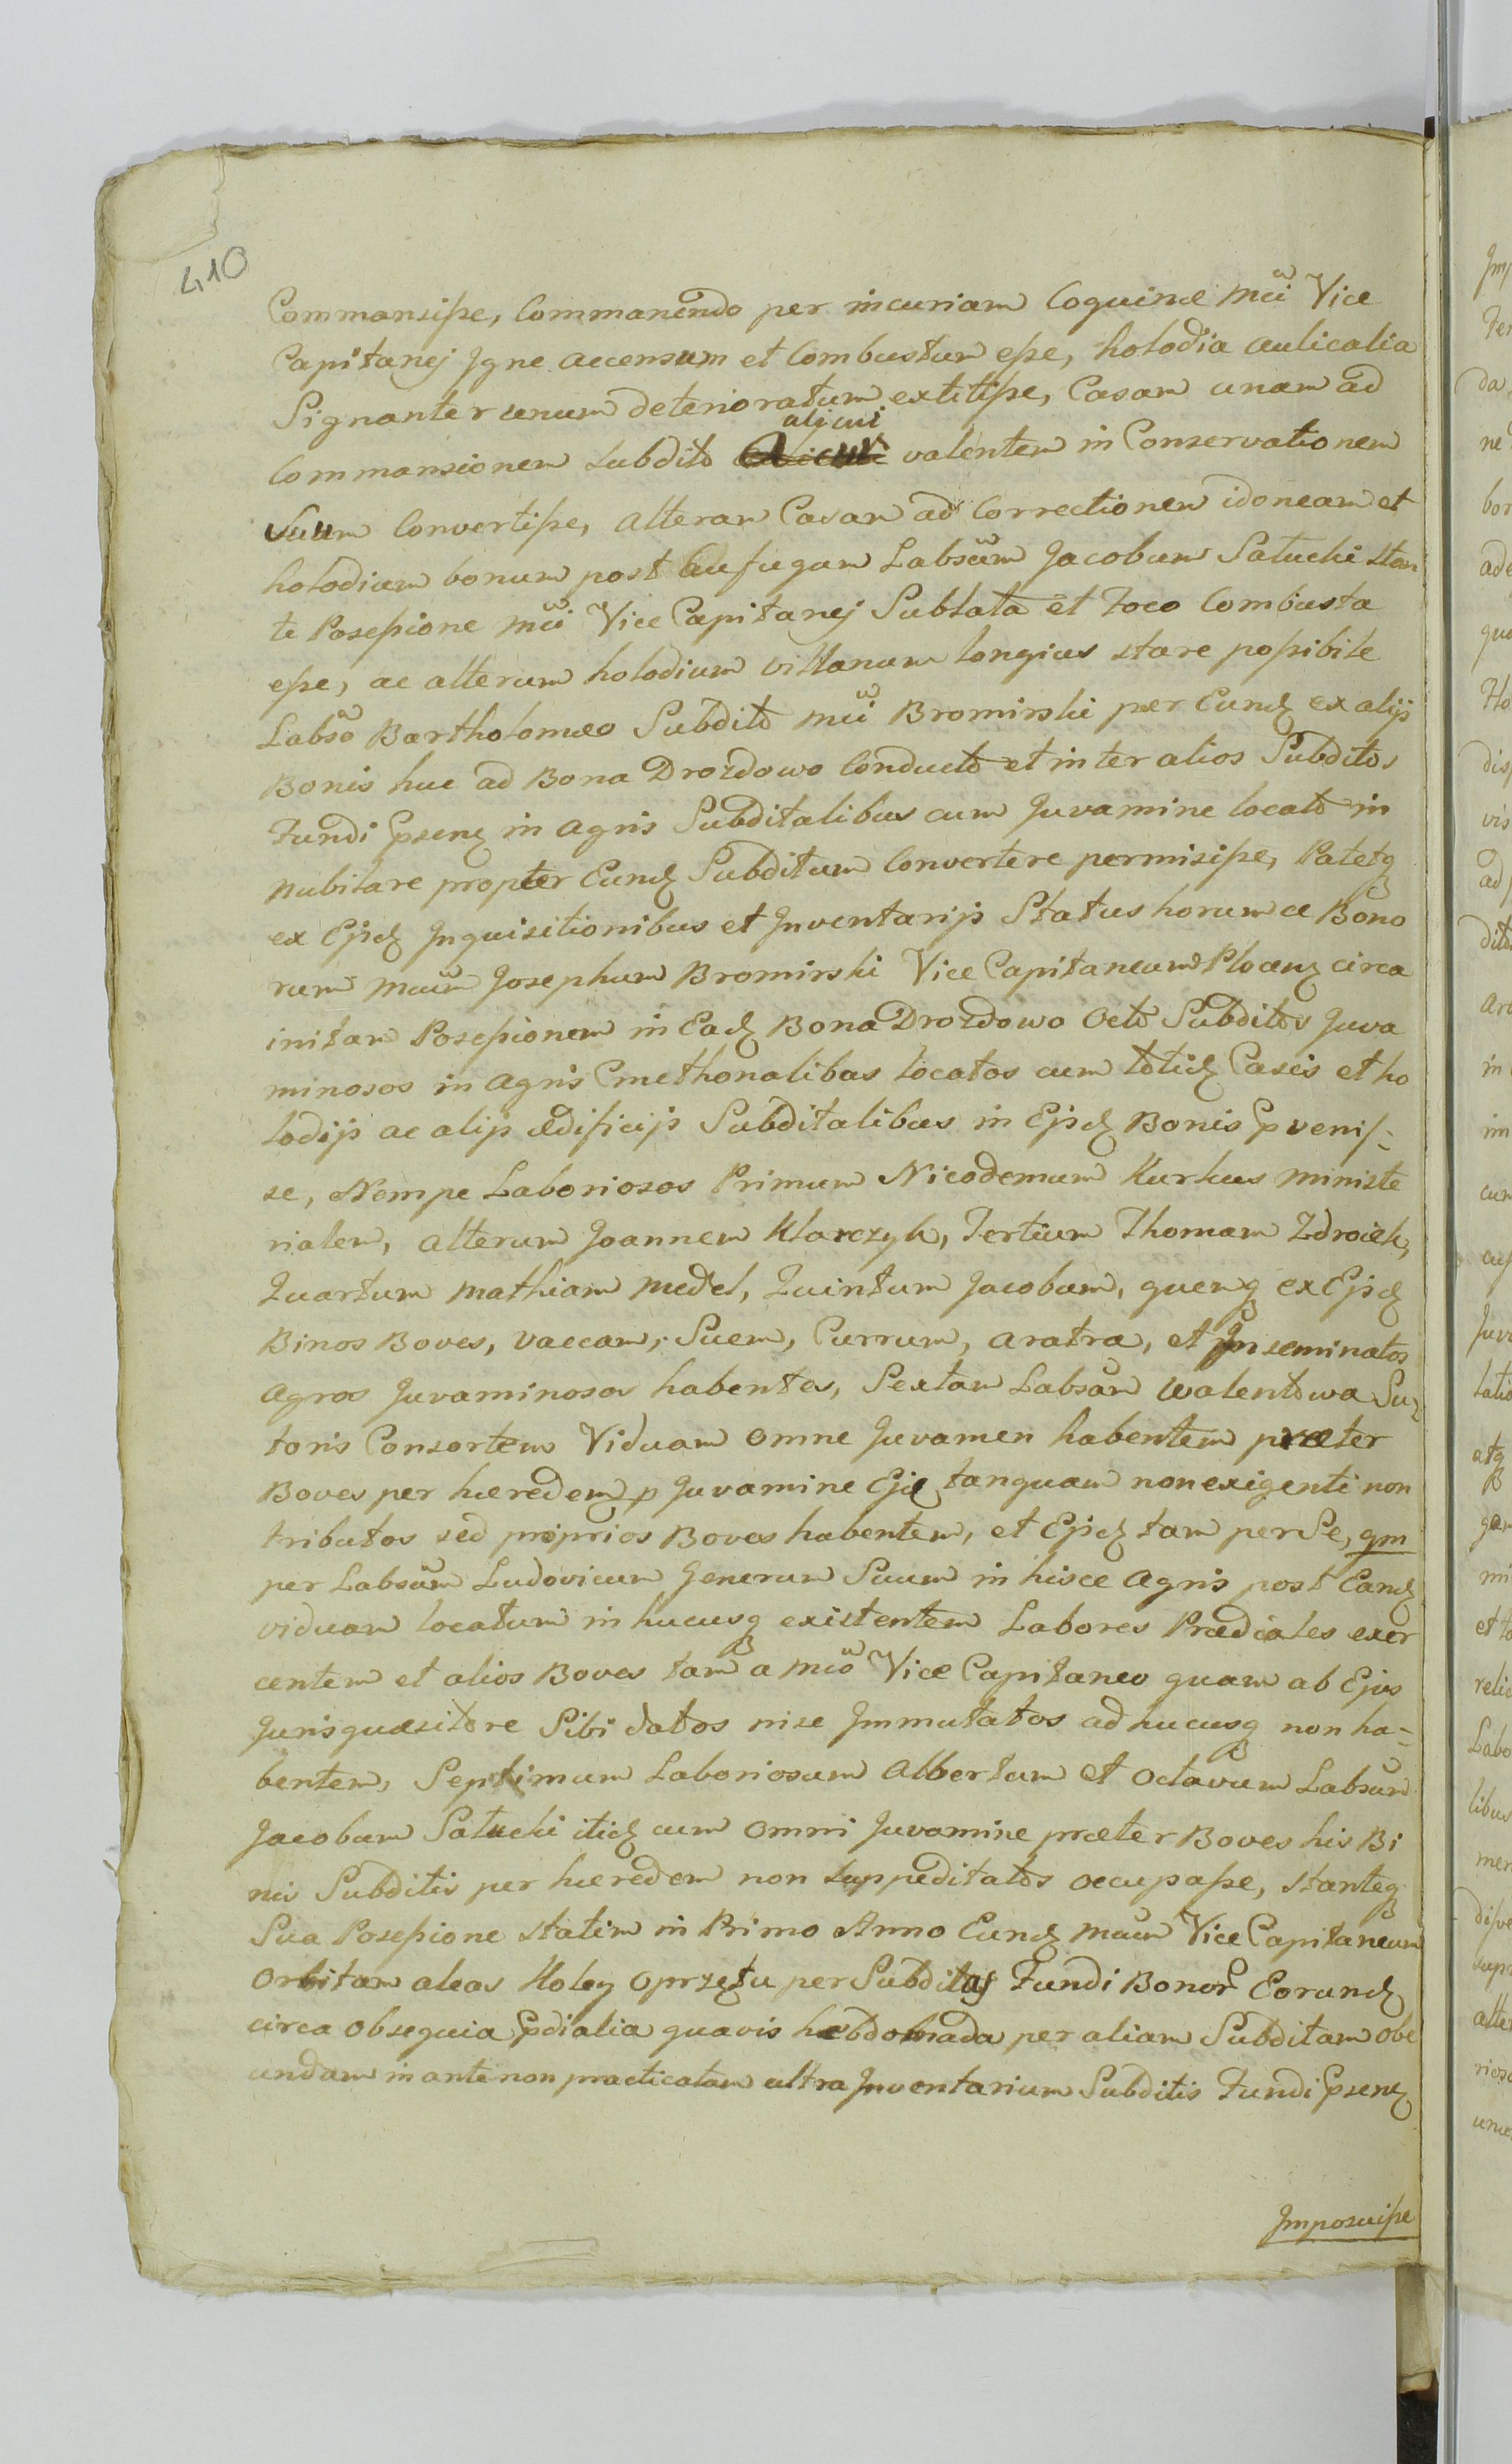 410
Commansisse, Commanendo per incuriam Coquinæ Mci Vice
Capitanej Igne accensum et Combustum esse, holodia aulicalia
Signanter unum deterioratum extitisse, Casam unam ad
alicui
Commansionem Subdito valentem in Conservationem
Suam Convertisse, alteram Casam ad Correctionem idoneam et
holodium bonum post aufugam Labsum Jacobum Satucki stan
te Posessione Mci Vice Capitanej Sublata et Foco Combusta
esse, ac alterum holodium villanum longius stare possibile
Labso Bartholomæo Subdito Mci Bromirski per Eund ex alijs
Bonis huc ad Bona Drozdowo Conducto et inter alios Subditos
Fundi Ppsenq in Agris Subditalibus cum Juvamine locato in
nubilare propter Eund Subditum Convertere permisisse, Patetq
ex Ejsd Inquisitionibus et Inventarijs Status horumce Bono
rum Mcum Josephum Bromirski Vice Capitaneum Plocen circa
initam Posessionem in Ead Bona Drozdowo Octo Subditos Juva
minosos in Agris Cmethonalibus locatos cum totid Casis et ho
lodijs ac alijs ædificijs Subditalibus in Ejsd Bonis pvenis-
se, Nempe Laboriosos Primum Nicodemum Kurkus ministe
rialem, alterum Joannem Klarczyk, Tertium Thomam Zdroiek,
Quartum Mathiam Medel, Quintum Jacobum, quemq ex Ejsd
Binos Boves, vaccam, Suem, Currum, aratra, et Inseminatos
Agros Juvaminosos habentes, Sextam Labsam Walentowa Su-
toris Consortem Viduam omne Juvamen habentem præter
Boves per hæredem p Juvamine Ejd tanquam non exigenti non
tributos sed proprios Boves habentem, et Ejsd tam per Se, qm
per Labsum Ludovicum Generum Suum in hisce Agris post Eand
viduam locatum in hucusq existentem Labores Prædiales exer
centem et alios Boves tam a Mco Vice Capitaneo quam ab Ejus
Jurisquæsitore Sibi datos nise Immutatos adhucusq non ha-
bentem, Septimum Laboriosum Albertum et Octavum Labsum
Jacobum Satucki itid cum omni Juvamine præter Boves his Bi
nis Subditis per hæredem non suppeditatos occupasse, stanteq
Sua Posessione statim in Primo Anno Eund Mcum Vice Capitaneum
Orbitam aleas Koley Oprzętu per Subditas Fundi Bonor Eorund
circa Obsequia Pdialia quavis hebdomada per aliam Subditam obe
undam in ante non practicatam ultra Inventarium Subditis Fundi Ppsenq
Imposuisse